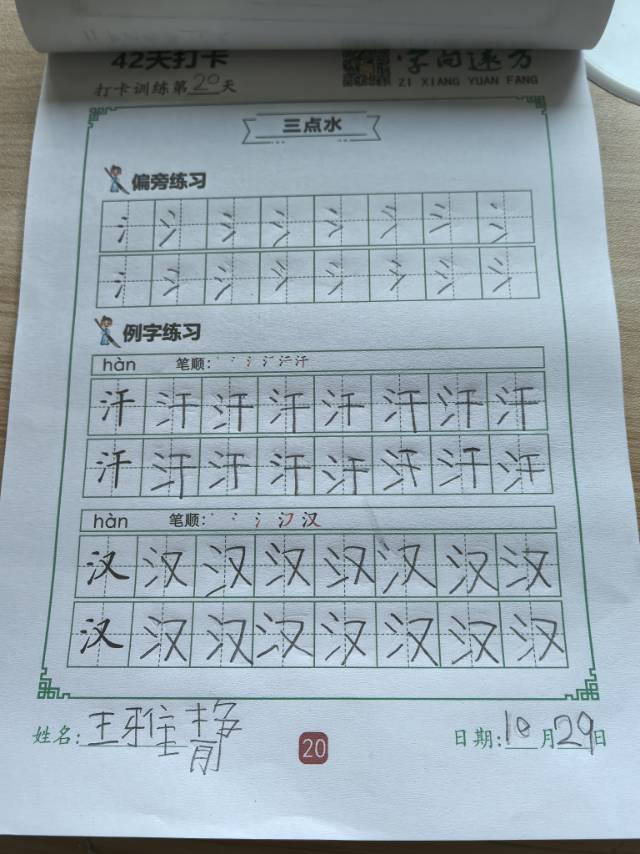 42天打卡
字向速方
打卡训练第20天
ZI XIANG YUAN FANG
三点水
偏旁练习
氵氵氵氵氵氵氵氵
氵氵氵氵氵氵氵氵
例字练习
hàn 笔顺:
汗汗汗汗汗汗汗汗
汗汗汗汗汗汗汗汗
hàn 笔顺: 汉
汉汉汉汉汉汉汉汉
汉汉汉汉汉汉汉汉
姓名: 王雅静
20
日期: 10月29日